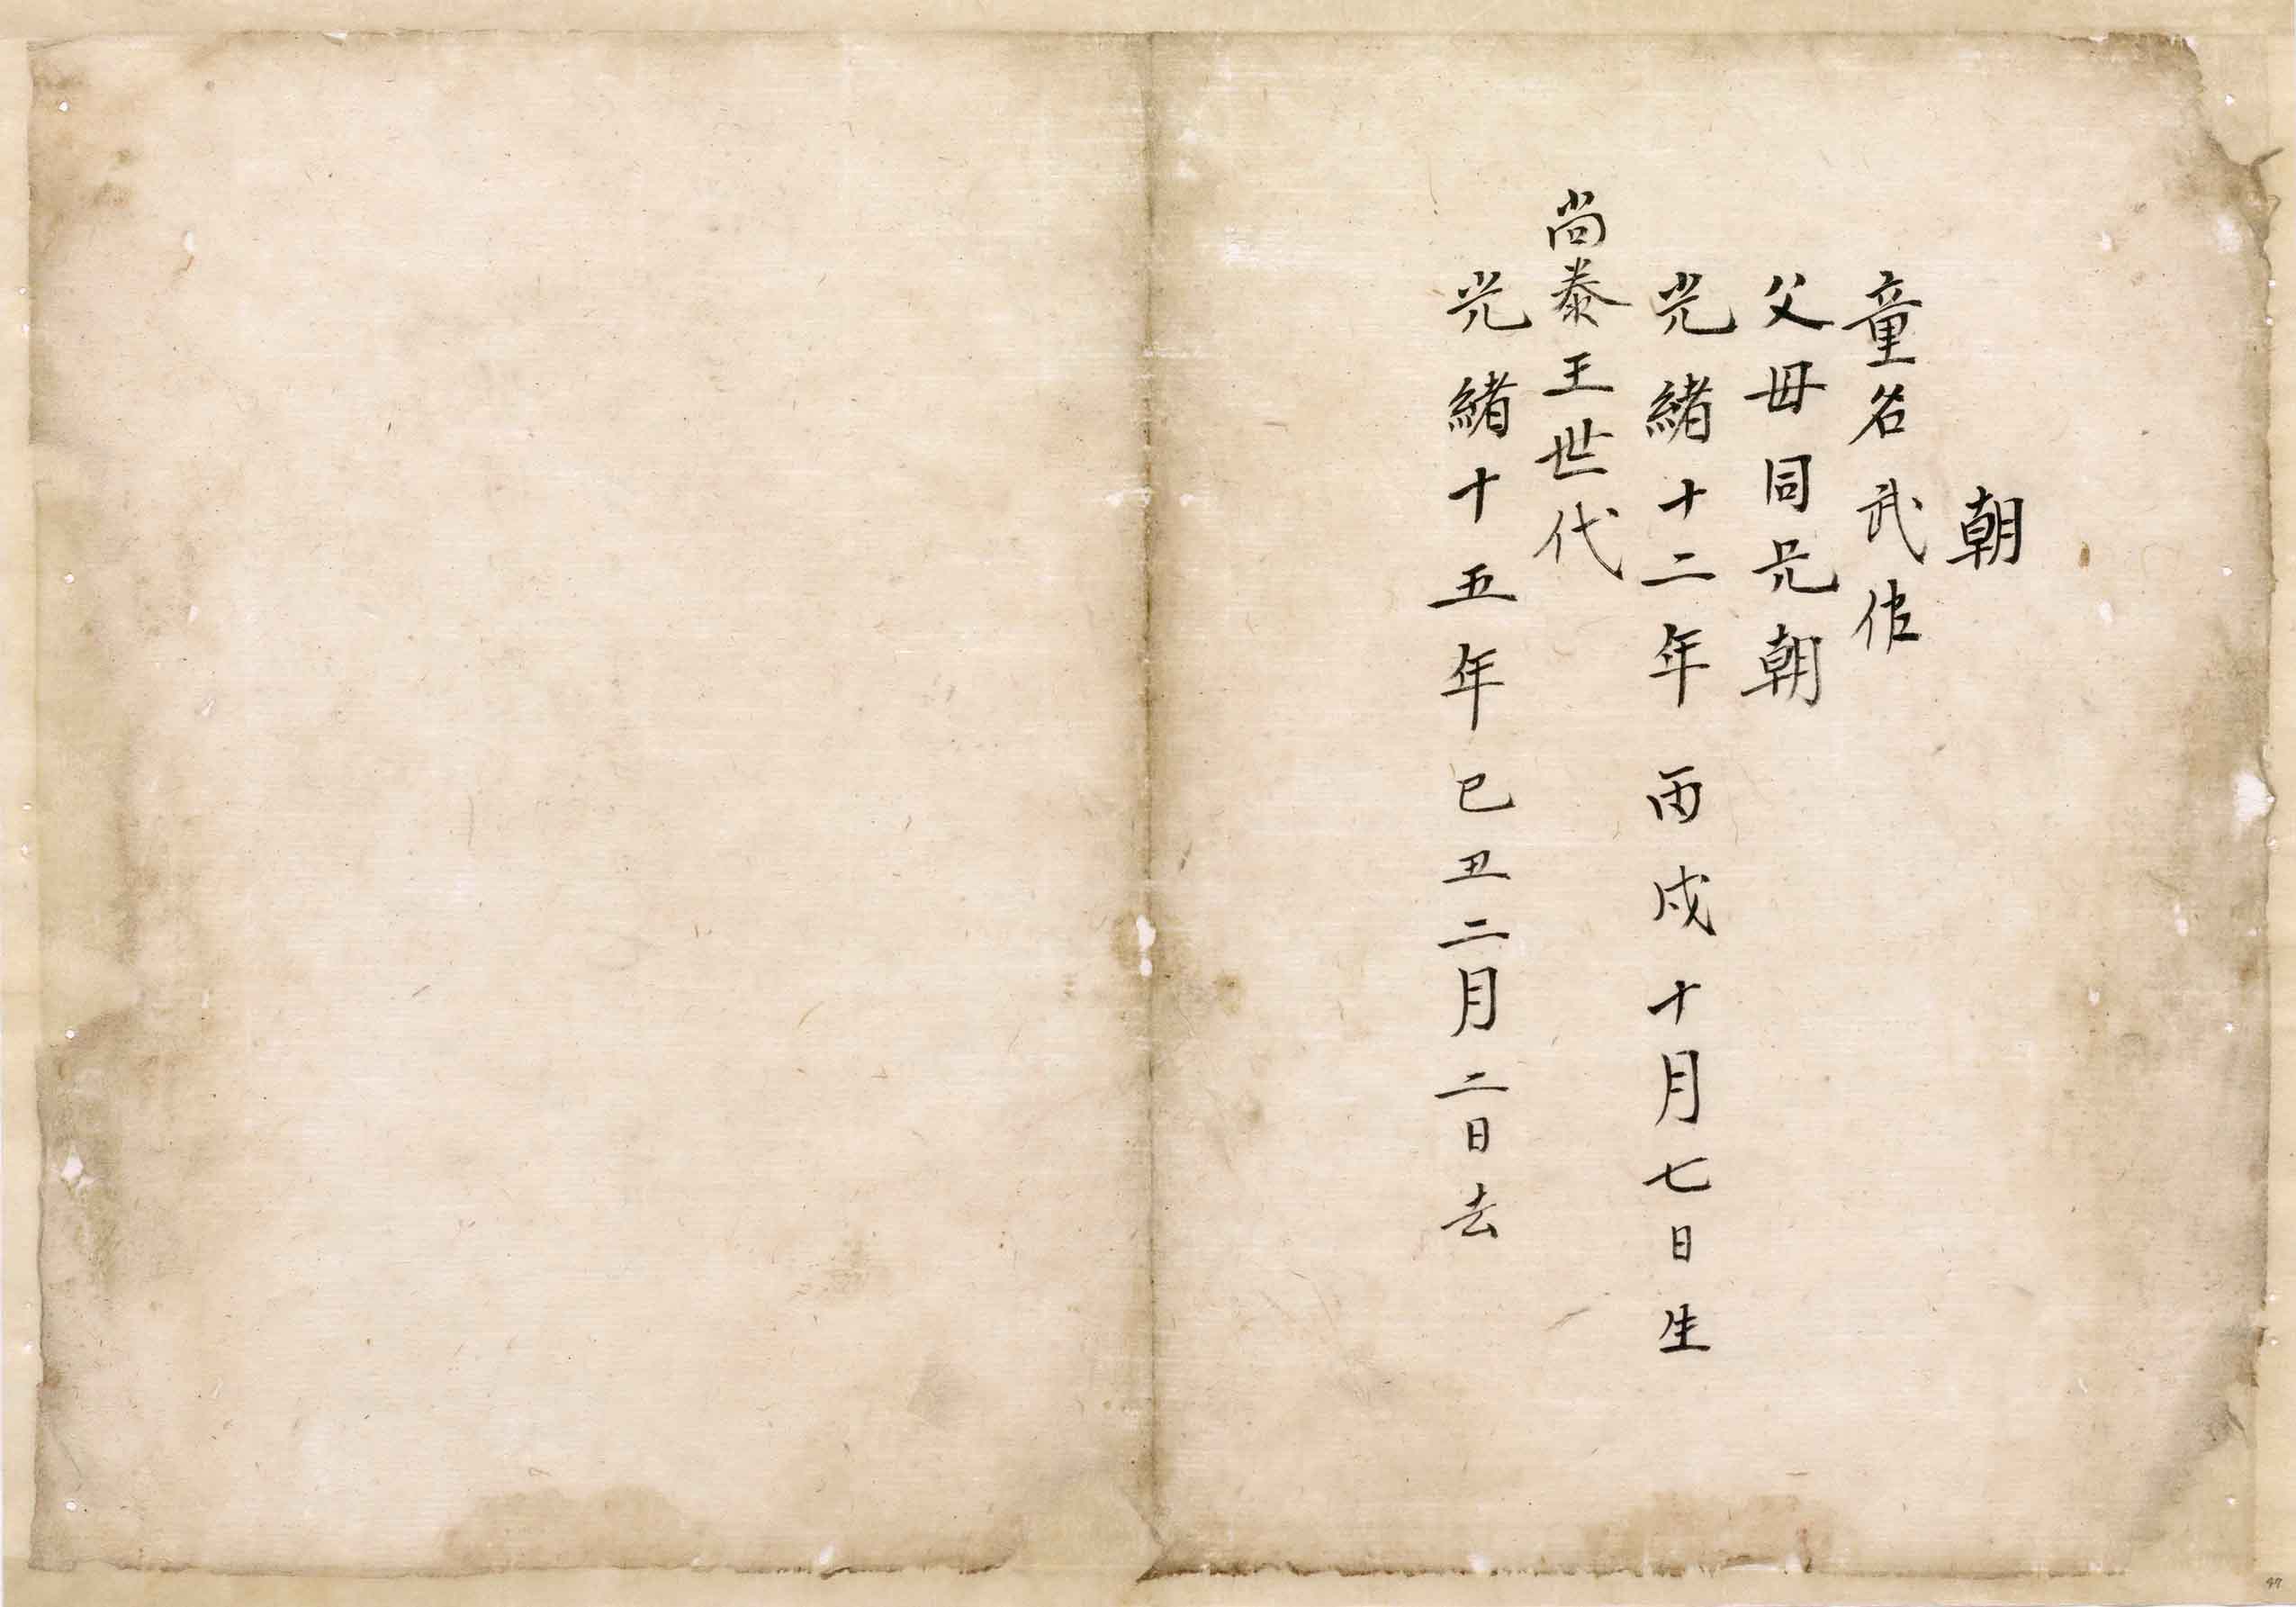 朝
童名武佐
父毋同兄朝
光緒十二年丙戌十月七日生
尚泰王世代
光緒十五年巳丑二月二日去
47